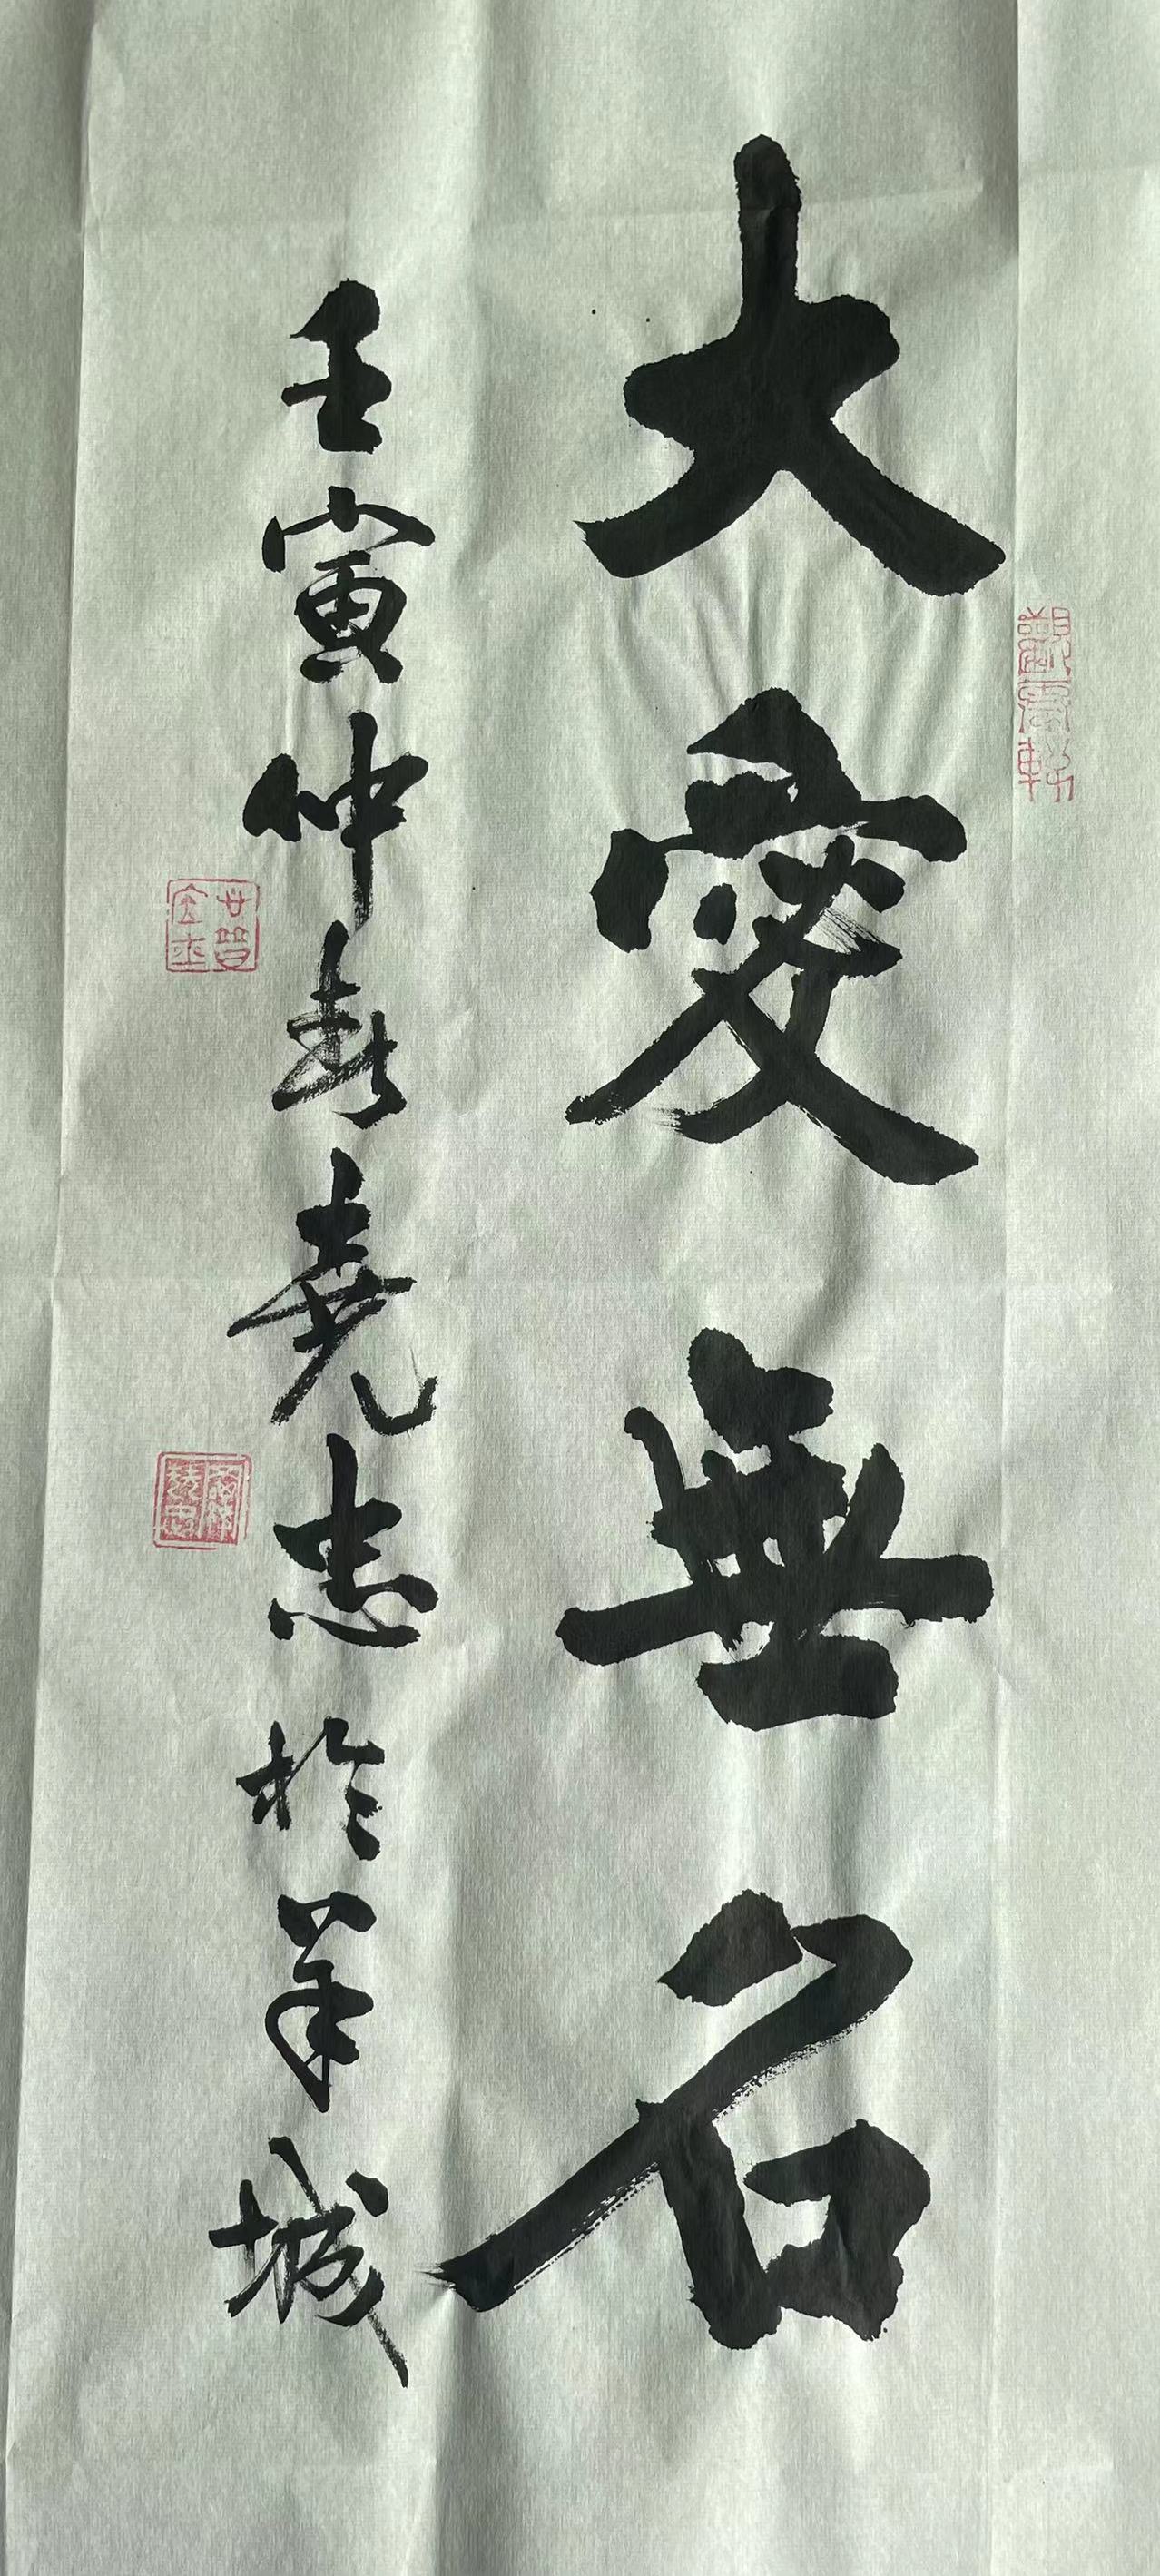 大愛無名
壬寅仲春堯志於羊城